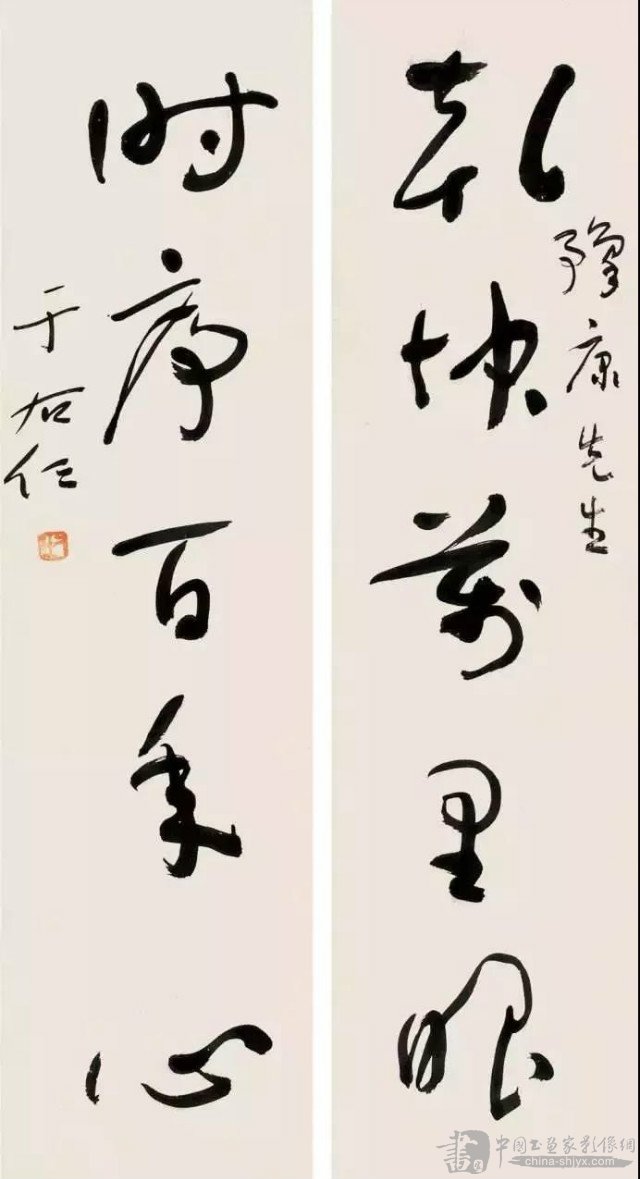 乾坤萬里眼
豫康先生
时序百年心
于右任
書 中國书画家影像網
china-shjyx.com